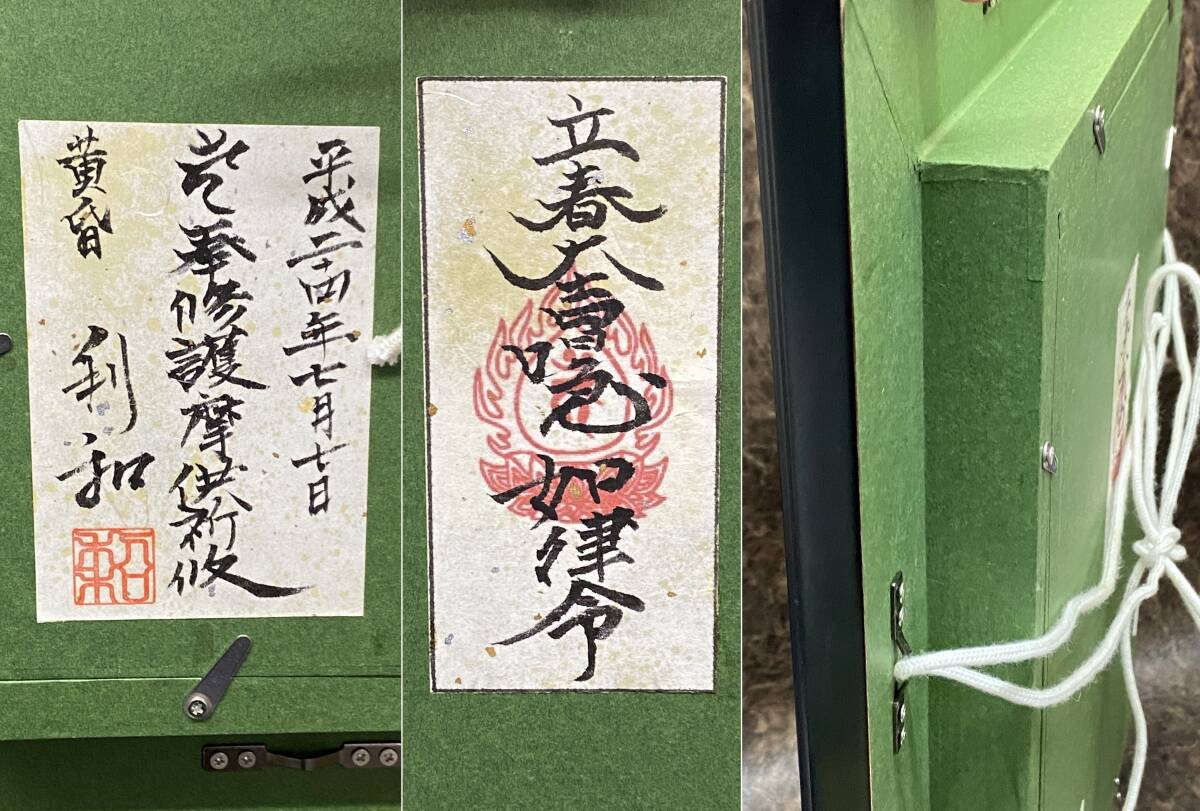 平成二十四年七月七日
奉修護摩供祈攸
黄昏 利和
立春大吉喼如律令